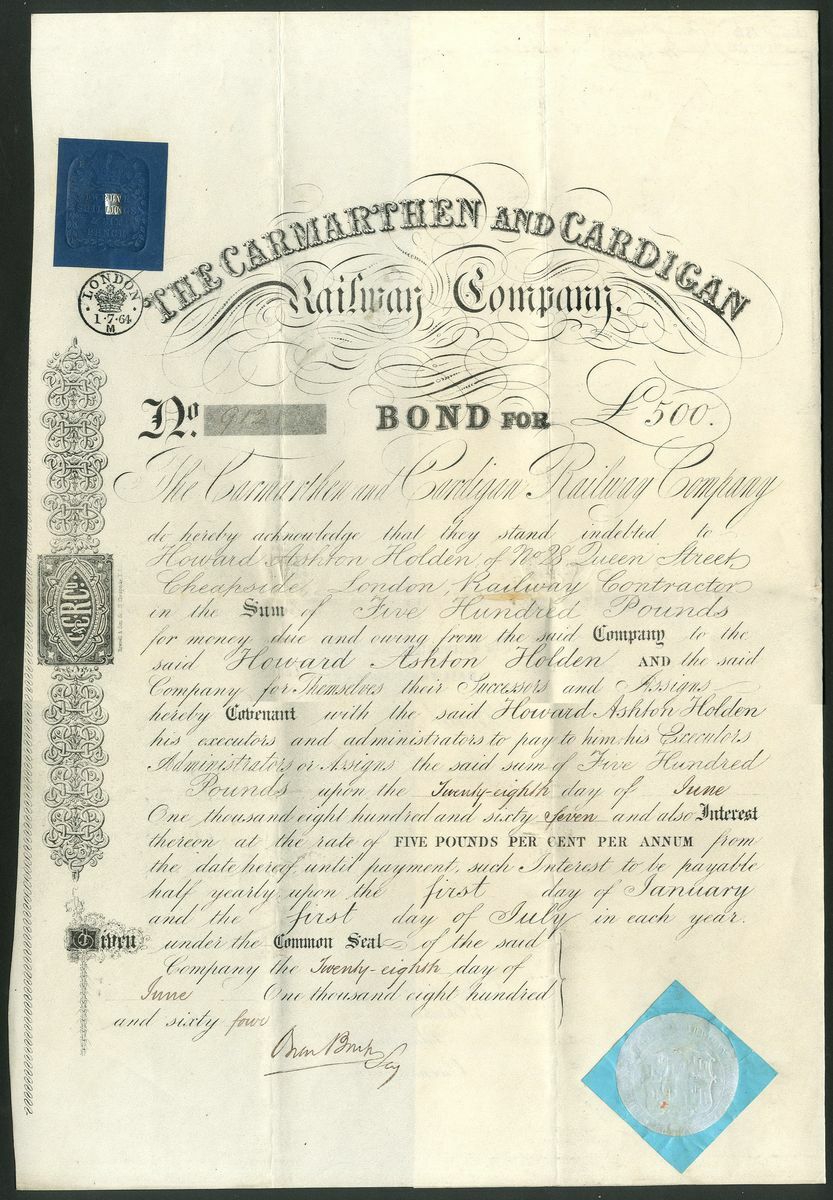 THE CARMARTHEN AND CARDIGAN
Railway Company.
LONDON
1·7·64
M
No. 912
BOND FOR £500.
The Carmarthen and Cardigan Railway Company
do hereby acknowledge that they stand indebted to
Howard Ashton Holden of No 28 Queen Street,
Cheapside, London, Railway Contractor
in the Sum of Five Hundred Pounds
for money due and owing from the said Company to the
said Howard Ashton Holden AND the said
Company for Themselves their Successors and Assigns
hereby Covenant with the said Howard Ashton Holden
his executors and administrators to pay to him, his Executors
Administrators or Assigns the said sum of Five Hundred
Pounds upon the Twenty-eighth day of June
One thousand eight hundred and sixty seven and also Interest
thereon at the rate of FIVE POUNDS PER CENT PER ANNUM from
the date hereof until payment, such Interest to be payable
half yearly upon the first day of January
and the first day of July in each year.
Given under the Common Seal of the said
Company the Twenty-eighth day of
June One thousand eight hundred
and sixty four
Secy
C&CRCo.